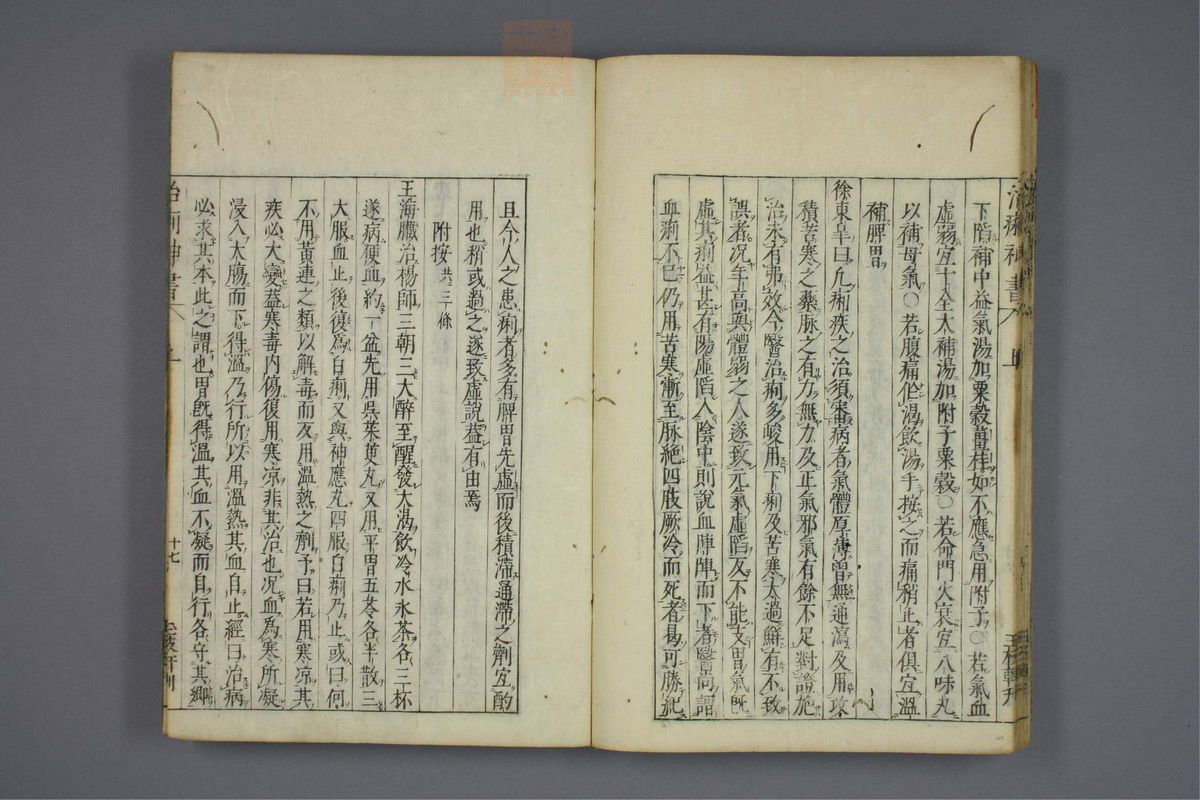 下陷補中益氣湯加粟殼薑桂如不應急用附子○若氣血
虛弱宜十全大補湯加附子粟殼○若命門火衰宜八味丸
以補母氣○若腹痛作渴飲湯手按之而痛稍止者俱宜溫
補脾胃
徐東皐曰凡痢疾之治須審病者氣體厚薄曾無通瀉及用攻
積苦寒之藥脉之有力無力及正氣邪氣有餘不足對證施
治未有弗效今醫治痢多峻用下痢及苦寒太過鮮有不致
誤者况年高與體弱之人遂致元氣虛陷反不能支胃氣既
虛其痢益甚有陽虛陷入陰中則說血陣陣而下者醫尚謂
血痢不已仍用苦寒漸至脉絕四肢厥冷而死者曷可勝紀
且今人之患痢者多有脾胃先虛而後積滯通滯之劑宜酌
用也稍或過之遂致虛說葢有由焉
附按 共三條
王海臟治楊師三朝三大醉至醒發大渴飲冷水氷茶各三杯
遂病便血約一盆先用吳茱萸丸又用平胃五苓各半散三
大服血止後復為白痢又與神應丸四服白痢乃止或曰何
不用黃連之類以解毒而反用溫熱之劑予曰若用寒凉其
疾必大變葢寒毒內傷復用寒凉非其治也况血為寒所凝
浸入大腸而下得溫乃行所以用溫熱其血自止經曰治病
必求其本此之謂也胃既得溫其血不凝而自行各守其鄉
治痢神書
十七